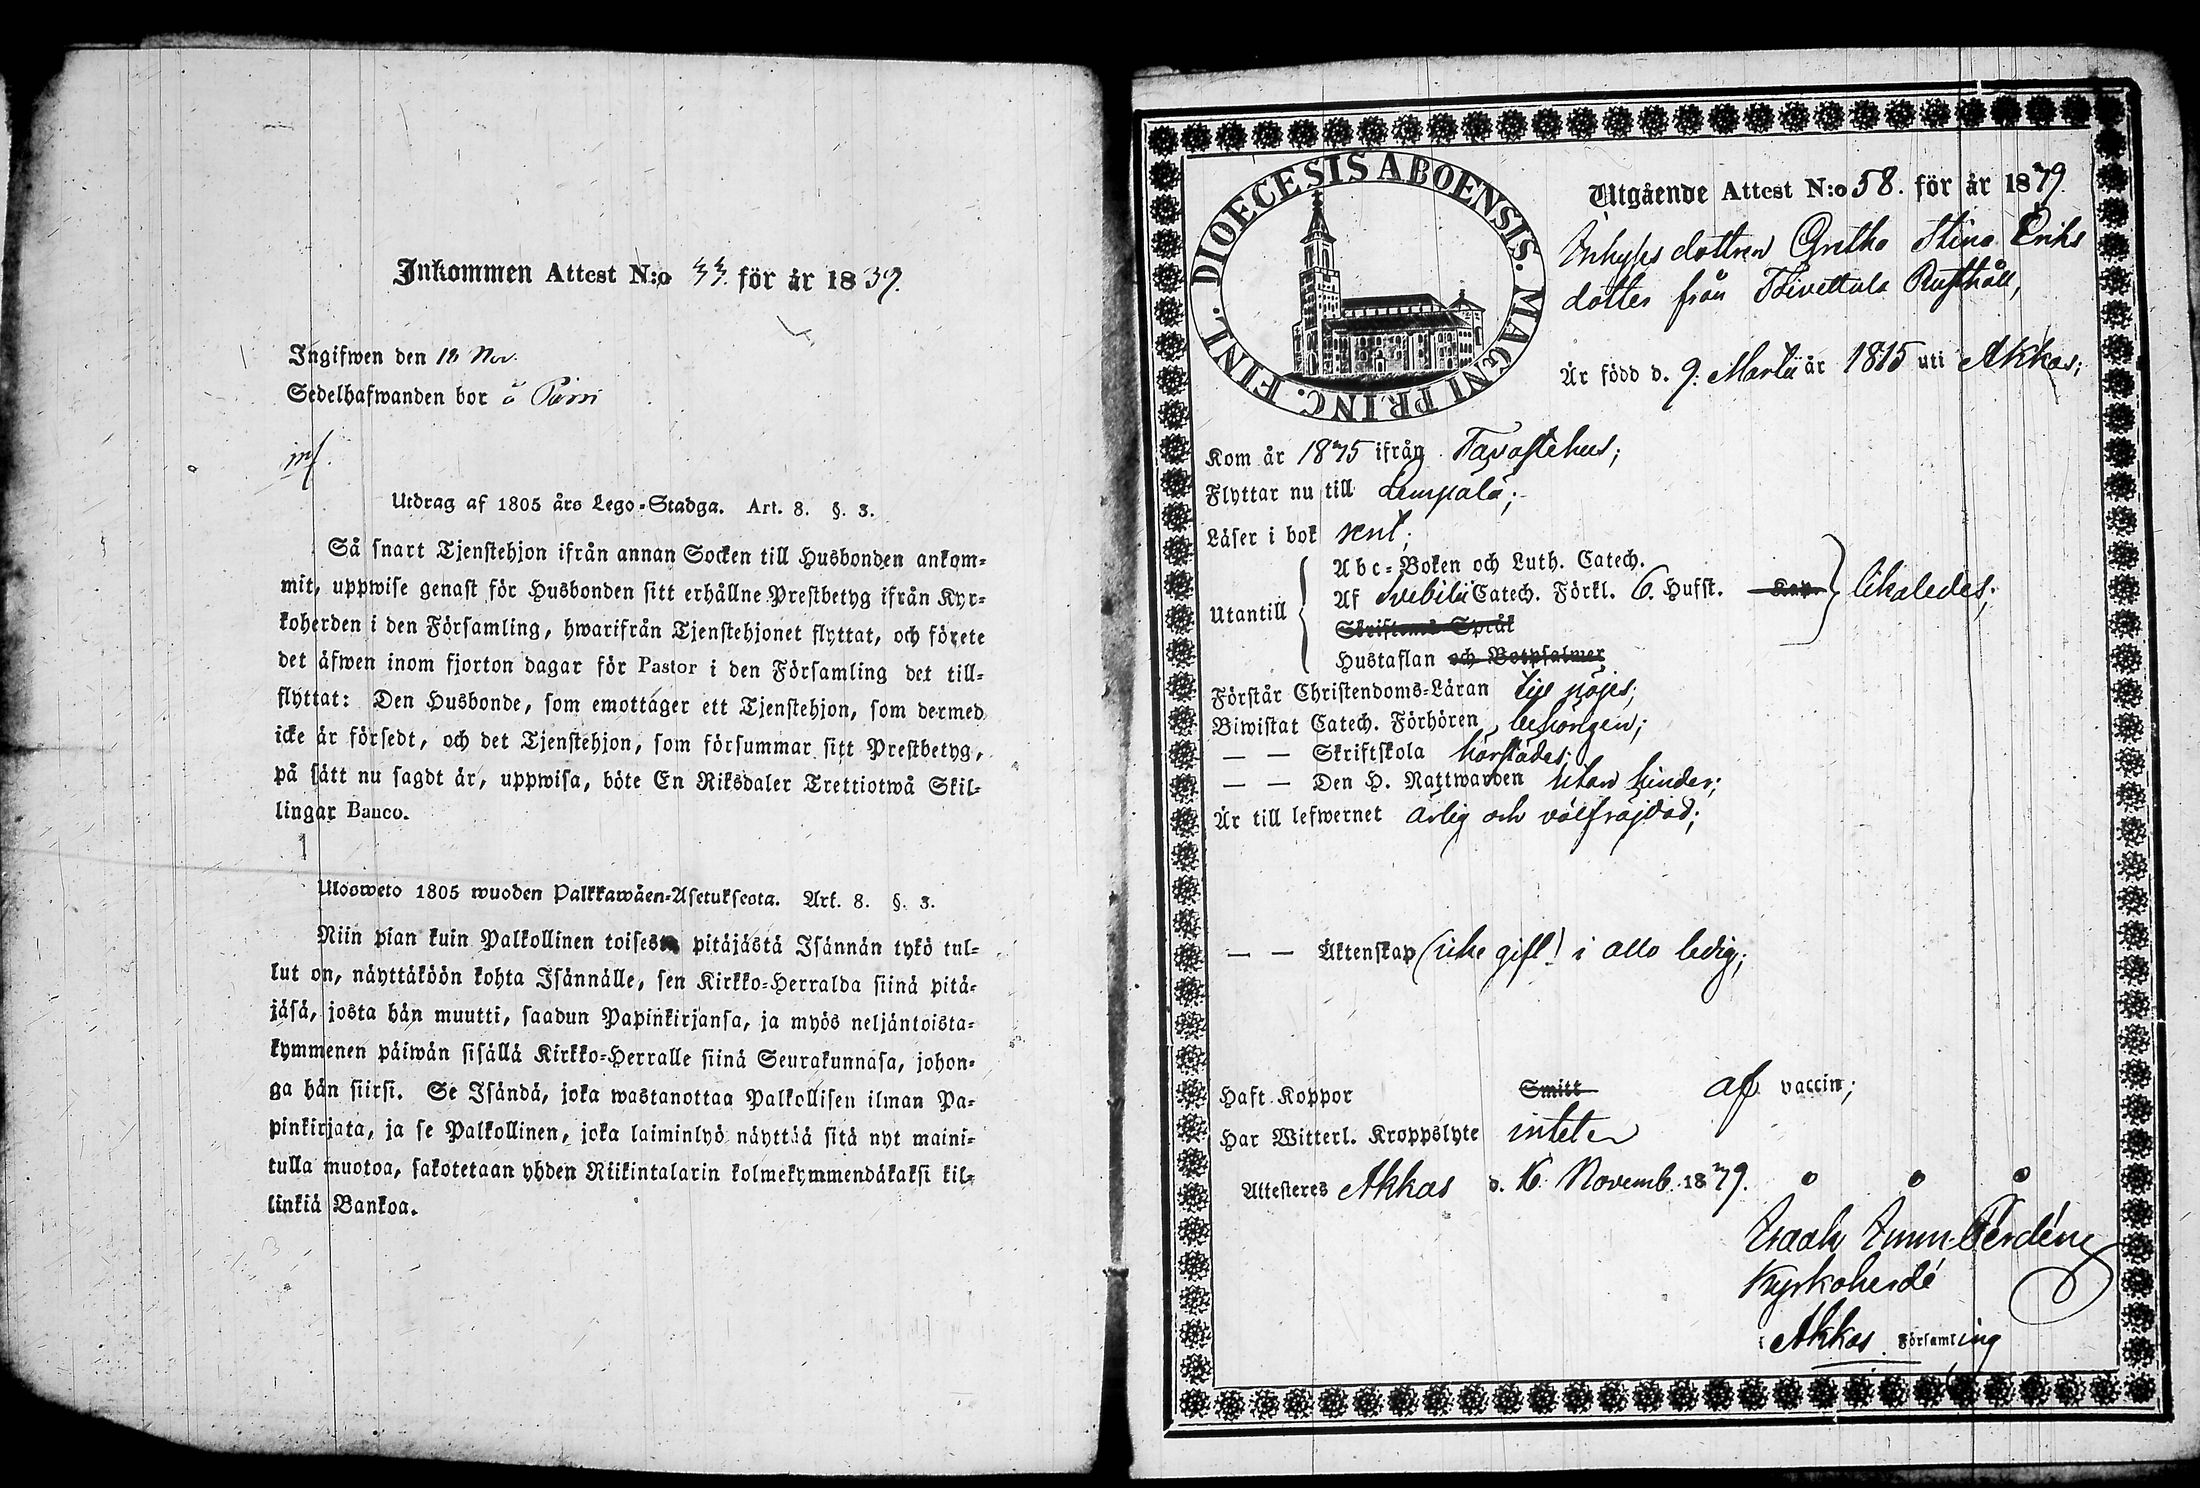 Inkommen Attest N:o 33. för år 1839.
Ingifwen den 18 Nov.
Sedelhafwanden bor å
inf.
Utdrag af 1805 års Lego-Stadga. Art. 8. §. 3.
Så snart Tjenstehjon ifrån annan Socken till Husbonden ankom-
mit, uppwise genast för Husbonden sitt erhållne Prestbetyg ifrån Kyr-
koherden i den Församling, hwarifrån Tjenstehjonet flyttat, och förete
det äfwen inom fjorton dagar för Pastor i den Församling det till-
flyttat: Den Husbonde, som emottager ett Tjenstehjon, som dermed
icke är försedt, och det Tjenstehjon, som försummar sitt Prestbetyg,
på sätt nu sagdt är, uppwisa, böte En Riksdaler Trettiotwå Skil-
lingar Banco.
Ulosweto 1805 wuoden Palkkawäen-Asetuksesta. Art. 8. §. 3.
Niin pian kuin Palkollinen toisesta pitäjästä Isännän tykö tul-
lut on, näyttäköön kohta Isännälle, sen Kirkko-Herralda siinä pitä-
jäsä, josta hän muutti, saadun Papinkirjansa, ja myös neljäntoista-
kymmenen päiwän sisällä Kirkko-Herralle siinä Seurakunnasa, johon-
ga hän siirsi. Se Isändä, joka wastanottaa Palkollisen ilman Pa-
pinkirjata, ja se Palkollinen, joka laiminlyö näyttää sitä nyt maini-
tulla muotoa, sakotetaan yhden Riikintalarin kolmekymmendäkaksi kil-
linkiä Bankoa.
DIOECESIS ABOENSIS. MAGNI PRINC. FINL.
Utgående Attest N:o 58. för år 1839.
Inhyses dottren Gretha Stina Eriks
dotter från Toivettula Rusthåll,
Är född d. 9. Martii år 1815 uti Akkas;
Kom år 1835 ifrån Tavastehus;
Flyttar nu till Lempälä;
Läser i bok rent;
Utantill
Abc-Boken och Luth. Catech.
Af Svebilii Catech. Förkl. 6. Hufst. Kap.
Skriftenes Språk
Hustaflan och Botpsalmer
likaledes;
Förstår Christendoms-Läran till nöjes;
Biwistat Catech. Förhören behörigen;
— — Skriftskola härstädes;
— — Den H. Nattwarden utan hinder;
Är till lefwernet ärlig och välfräjdad;
— — Äktenskap (icke gift) i allo ledig;
Haft Koppor Smitt af vaccin;
Har Witterl. Kroppslyte intet
Attesteres Akkas d. 16. Novemb. 1839.
Isaak Imm. Ferdén
Kyrkoherde
i Akkas Församling